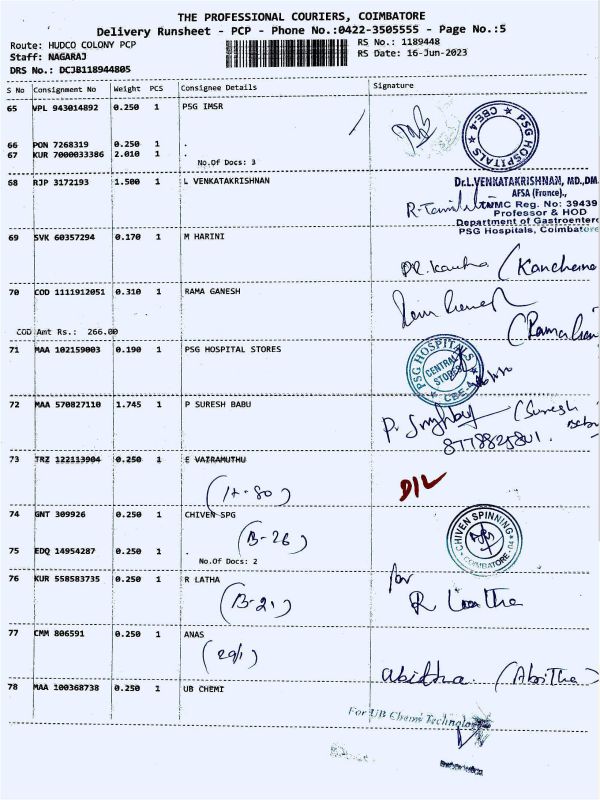 THE PROFESSIONAL COURIERS, COIMBATORE
Delivery Runsheet - PCP - Phone No.:0422-3505555 - Page No.:5
Route: HUDCO COLONY PCP
RS No.: 1189448
Staff: NAGARAJ
RS Date: 16-Jun-2023
DRS No.: DCJB118944805
S No Consignment No Weight PCS Consignee Details Signature
65 VPL 943014892 0.250 1 PSG IMSR
PSG HOSPITALS
CBE-4
66 PON 7268319 0.250 1 .
67 KUR 7000033386 2.010 1 .
No.Of Docs: 3
68 RJP 3172193 1.500 1 L VENKATAKRISHNAN
Dr.L.VENKATAKRISHNAN, MD.,DM.
AFSA (France).,
TNMC Reg. No: 39439
Professor & HOD
Department of Gastroentero
PSG Hospitals, Coimbatore
69 SVK 60357294 0.170 1 M HARINI
70 COD 1111912051 0.310 1 RAMA GANESH
COD Amt Rs.: 266.00
71 MAA 102159003 0.190 1 PSG HOSPITAL STORES
PSG HOSPITALS
CENTRAL
STORES
CBE-4
72 MAA 570827110 1.745 1 P SURESH BABU
(Suresh
Babu
8778825801.
73 TRZ 122113904 0.250 1 E VAIRAMUTHU
(H-80)
D/L
74 GNT 309926 0.250 1 CHIVEN SPG
(B-26)
CHIVEN SPINNING
COIMBATORE-04
75 EDQ 14954287 0.250 1 .
No.Of Docs: 2
76 KUR 558583735 0.250 1 R LATHA
(B-21)
for
R Latha
77 CMM 806591 0.250 1 ANAS
(29/1)
Abidtha. (Abitha)
78 MAA 100368738 0.250 1 UB CHEMI
For UB Chemi Technology